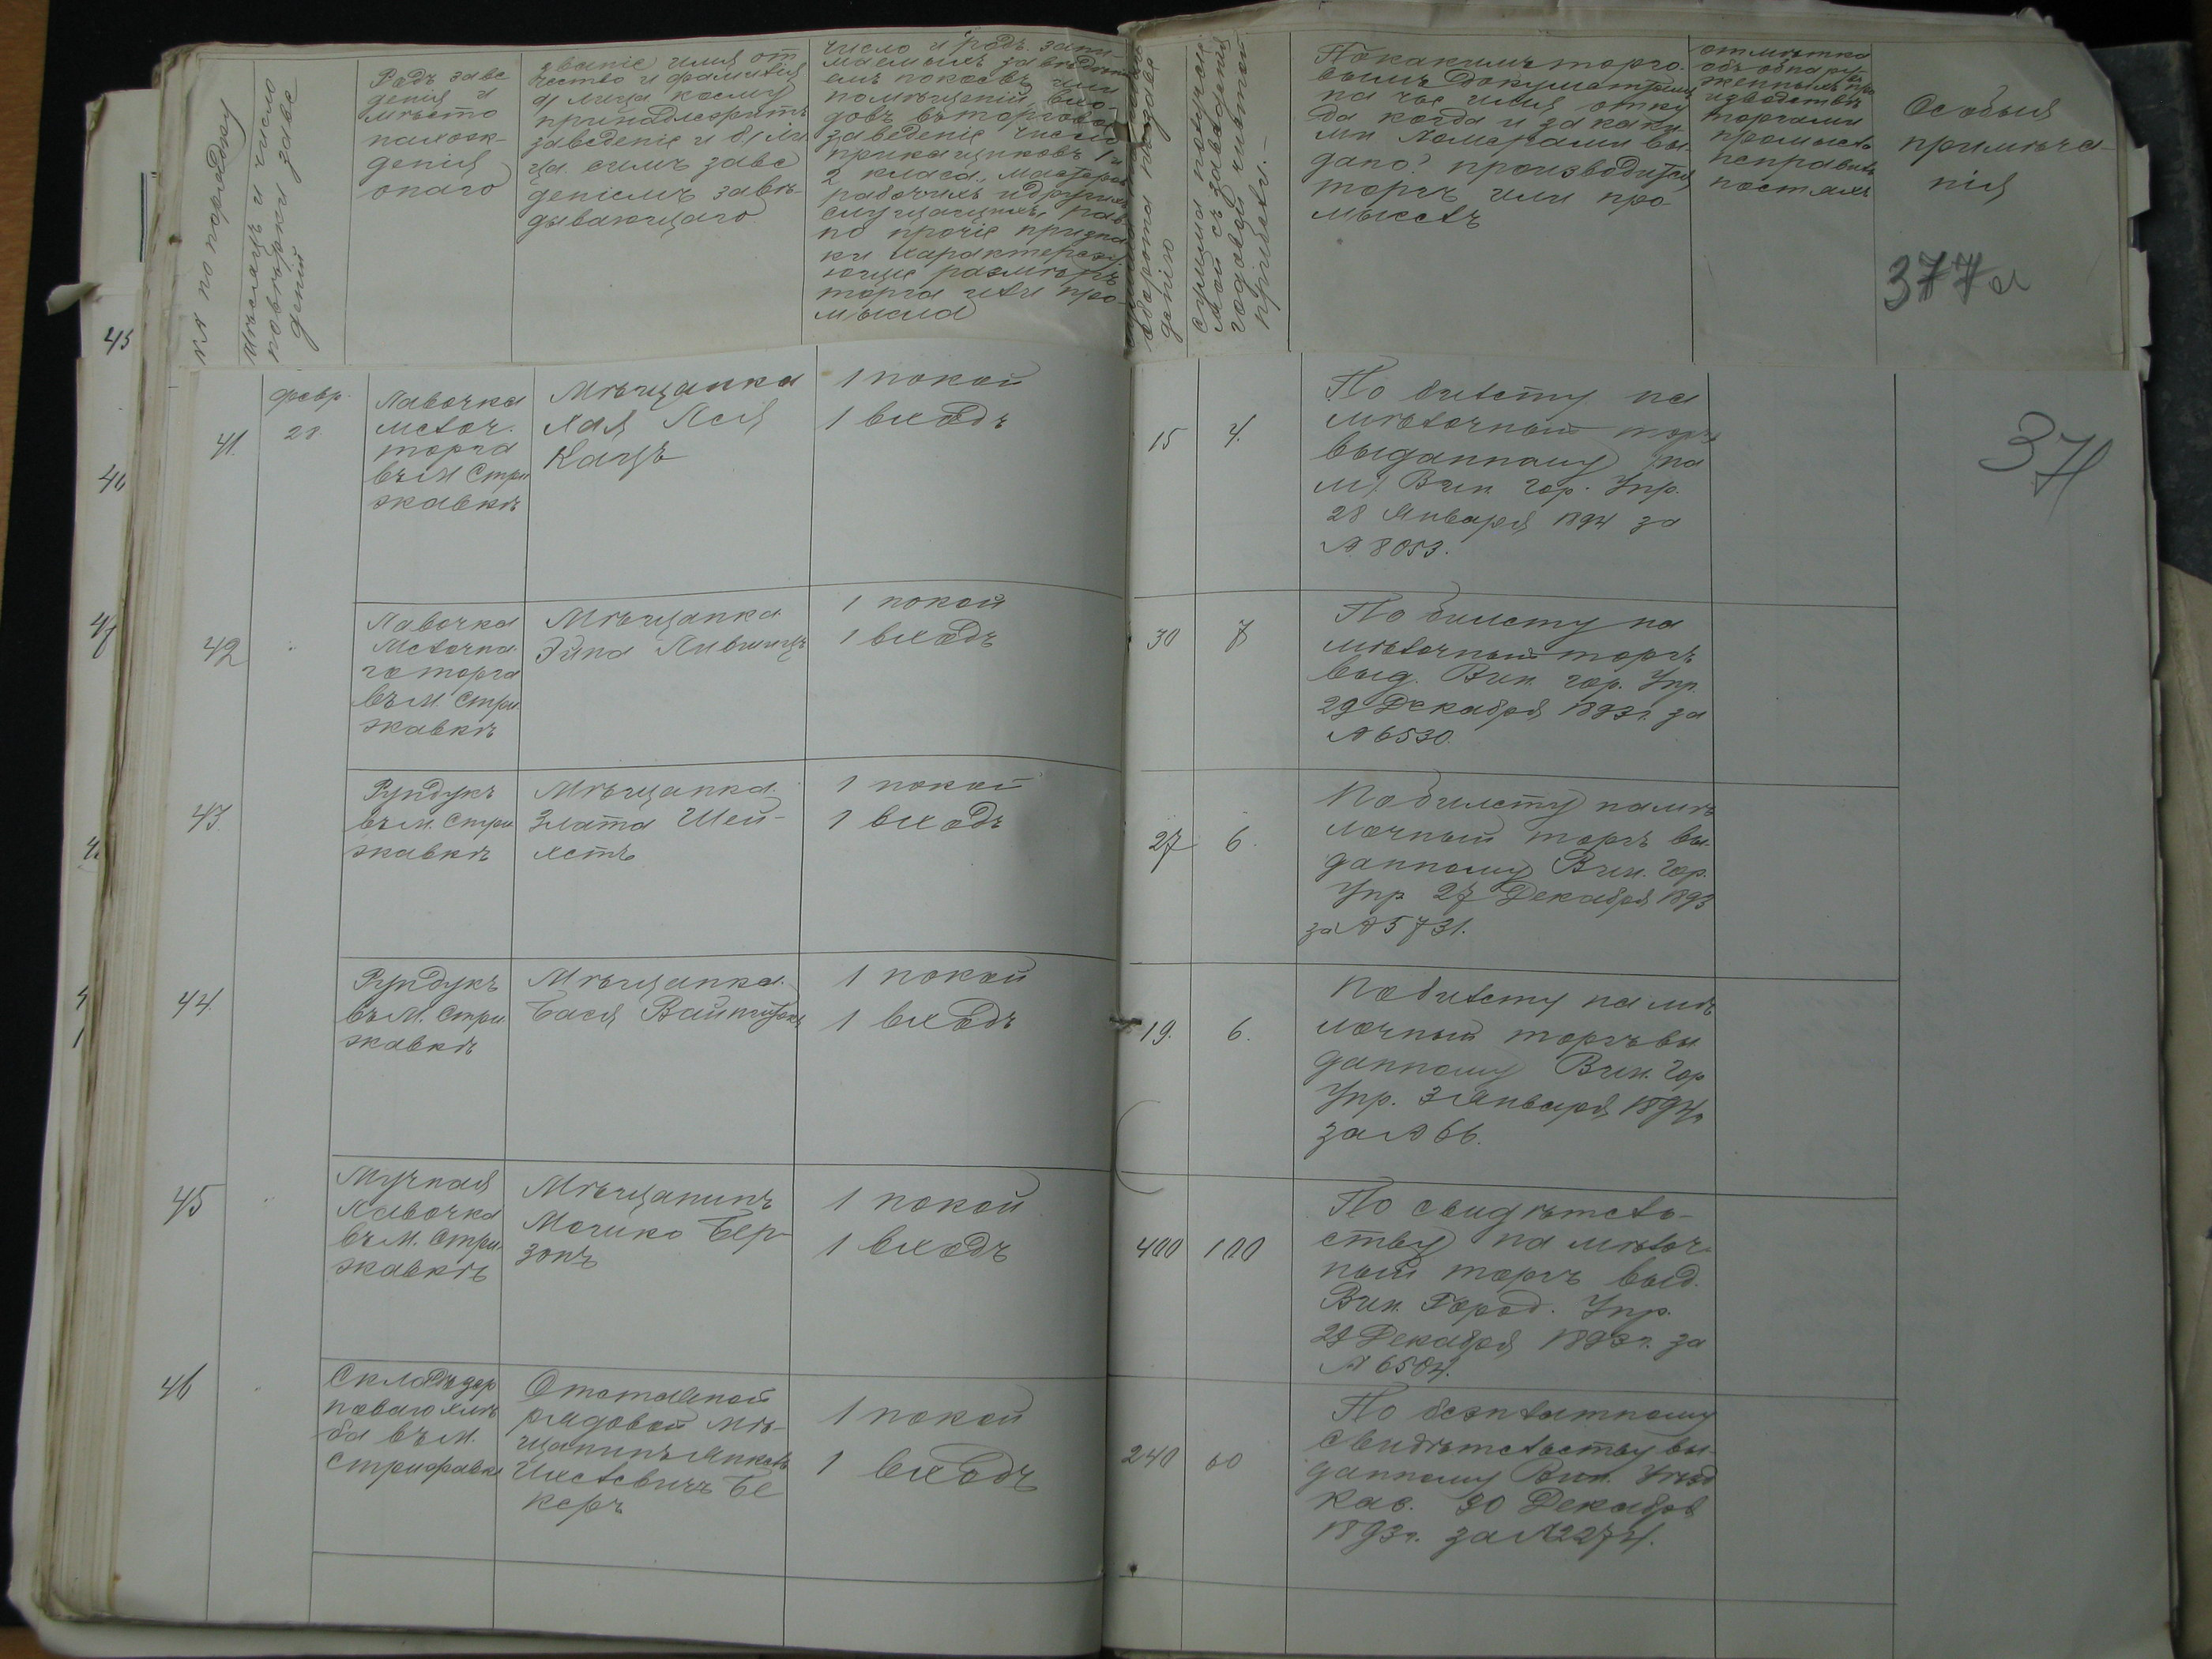 №№ по порядку
Мѣсяцъ и число
повѣрки заве
деній
Родъ заве
денія и
мѣсто
нахож-
денія
онаго
Званіе имя от
чество и фамилія
а) лица коему
принадлежитъ
заведеніе и б) ли
ца симъ заве
деніемъ завѣ-
дывающаго
Число и родъ зани
маемыхъ заведені
емъ покоевъ или
помѣщеній, вхо-
довъ въ торговое
заведеніе число
прикащиковъ 1 и
2 класа, мастеров
рабочихъ и другихъ
служащихъ, рав
но прочіе призна
ки характеризу
ющіе размѣръ
торга или про-
мысла
оборота по заве
денію
Сумма получен.
мой съ заведенія
годовой чистой
прибыли.-
По какимъ торго-
вымъ документамъ
на чье имя отку
да когда и за каки-
ми номерами вы-
дано? производится
торгъ или про
мыселъ
Отмѣтка
объ обнару
женныхъ про
изводствѣ
торговли
промысл.
неправиль
ностяхъ
Особыя
примѣча-
нія
377а
37
41.
февр.
21.
Лавочка
мелоч.
торга
въ М. Стри
жавкѣ
Мѣщанка
Хая Лея
Кацъ
1 покой
1 входъ
15
4.
По билету на
мѣлочный торгъ
выданному на
м/ Вин. гор. Упр.
28 Января 1894 за
№ 8053.
42
Лавочка
Мелочна
го торга
въ М. Стри
жавкѣ
Мѣщанка
Эйна Лившицъ
1 покой
1 входъ
30
7
По билету на
мѣлочный торгъ
выд. Вин. гор. Упр.
29 Декабря 1893г. за
№ 6530.
43.
Рундукъ
въ М. Стри
жавкѣ
Мѣщанка
Злата Шей-
хетъ
1 покой
1 входъ
27
6.
По билету на мѣ
лочный торгъ вы-
данному Вин. Гор.
Упр 27 Декабря 1893
за № 5731.
44.
Рундукъ
въ М. Стри
жавкѣ
Мѣщанка
Бася
1 покой
1 входъ
19.
6.
По билету на мѣ
лочный торгъ вы
данному Вин. Гор
Упр. 3 Января 1894г
за № 66.
45
Мучная
Лавочка
въ М. Стри-
жавкѣ
Мѣщанинъ
Мошко Бер-
зонъ
1 покой
1 входъ
400
100
По свидѣтель-
ству на мѣлоч-
ный торгъ выд.
Вин. Город. Упр.
29 Декабря 1893г. за
№ 6504.
46
Складъ зер
новаго хлѣ
ба въ М.
Стрижавкѣ
Отставной
рядовой мѣ-
щанинъ Янкель
Ихелевичъ Бе
керъ
1 покой
1 входъ
240
60
По безплатному
свидѣтельству вы-
данному Вин. Уѣзд
Каз. 30 Декабря
1893г. за № 2274.